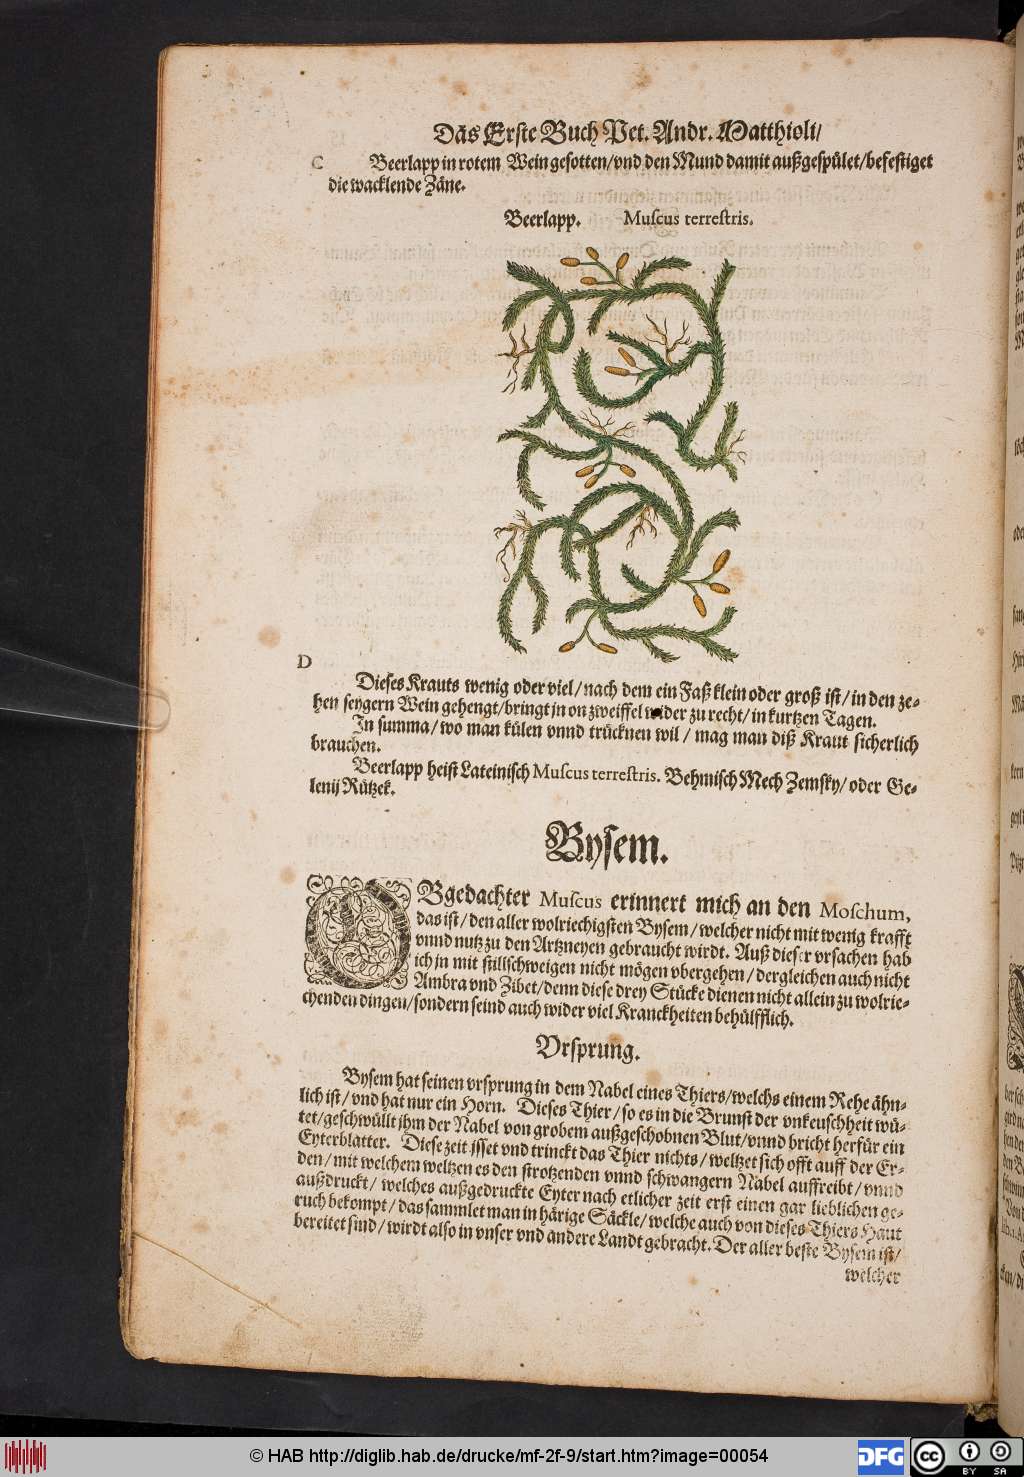 Das Erste Buch Pet. Andr. Matthioli/
C Beerlapp in rotem Wein gesotten/vnd den Mund damit außgespület/befestiget
die wacklende Zäne.
Beerlapp. Muscus terrestris.
D
Dieses Krauts wenig oder viel/nach dem ein Faß klein oder groß ist/in den ze-
hen seygern Wein gehengt/bringt jn on zweiffel wider zu recht/in kurtzen Tagen.
In summa/wo man külen vnnd trücknen wil/mag man diß Kraut sicherlich
brauchen.
Beerlapp heist Lateinisch Muscus terrestris. Behmisch Mech Zemsky/oder Ge-
lenij Růtzek.
Bysem.
OBgedachter Muscus erinnert mich an den Moschum,
das ist/den aller wolriechigsten Bysem/welcher nicht mit wenig krafft
vnnd nutz zu den Artzneyen gebraucht wirdt. Auß dieser vrsachen hab
ich jn mit stillschweigen nicht mögen vbergehen/dergleichen auch nicht
Ambra vnd Zibet/denn diese drey Stücke dienen nicht allein zu wolrie-
chenden dingen/sondern seind auch wider viel Kranckheiten behülfflich.
Vrsprung.
Bysem hat seinen vrsprung in dem Nabel eines Thiers/welchs einem Rehe ähn-
lich ist/vnd hat nur ein Horn. Dieses Thier/so es in die Brunst der vnkeuschheit wü-
tet/geschwüllt jhm der Nabel von grobem außgeschobnen Blut/vnnd bricht herfür ein
Eyterblatter. Diese zeit jsset vnd trinckt das Thier nichts/weltzet sich offt auff der Er-
den/mit welchem weltzen es den strotzenden vnnd schwangern Nabel auffreibt/vnnd
außdruckt/welches außgedruckte Eyter nach etlicher zeit erst einen gar lieblichen ge-
ruch bekompt/das sammlet man in härige Säckle/welche auch von dieses Thiers Haut
bereitet sind/wirdt also in vnser vnd andere Landt gebracht. Der aller beste Bysem ist/
welcher
© HAB http://diglib.hab.de/drucke/mf-2f-9/start.htm?image=00054
DFG
cc BY SA